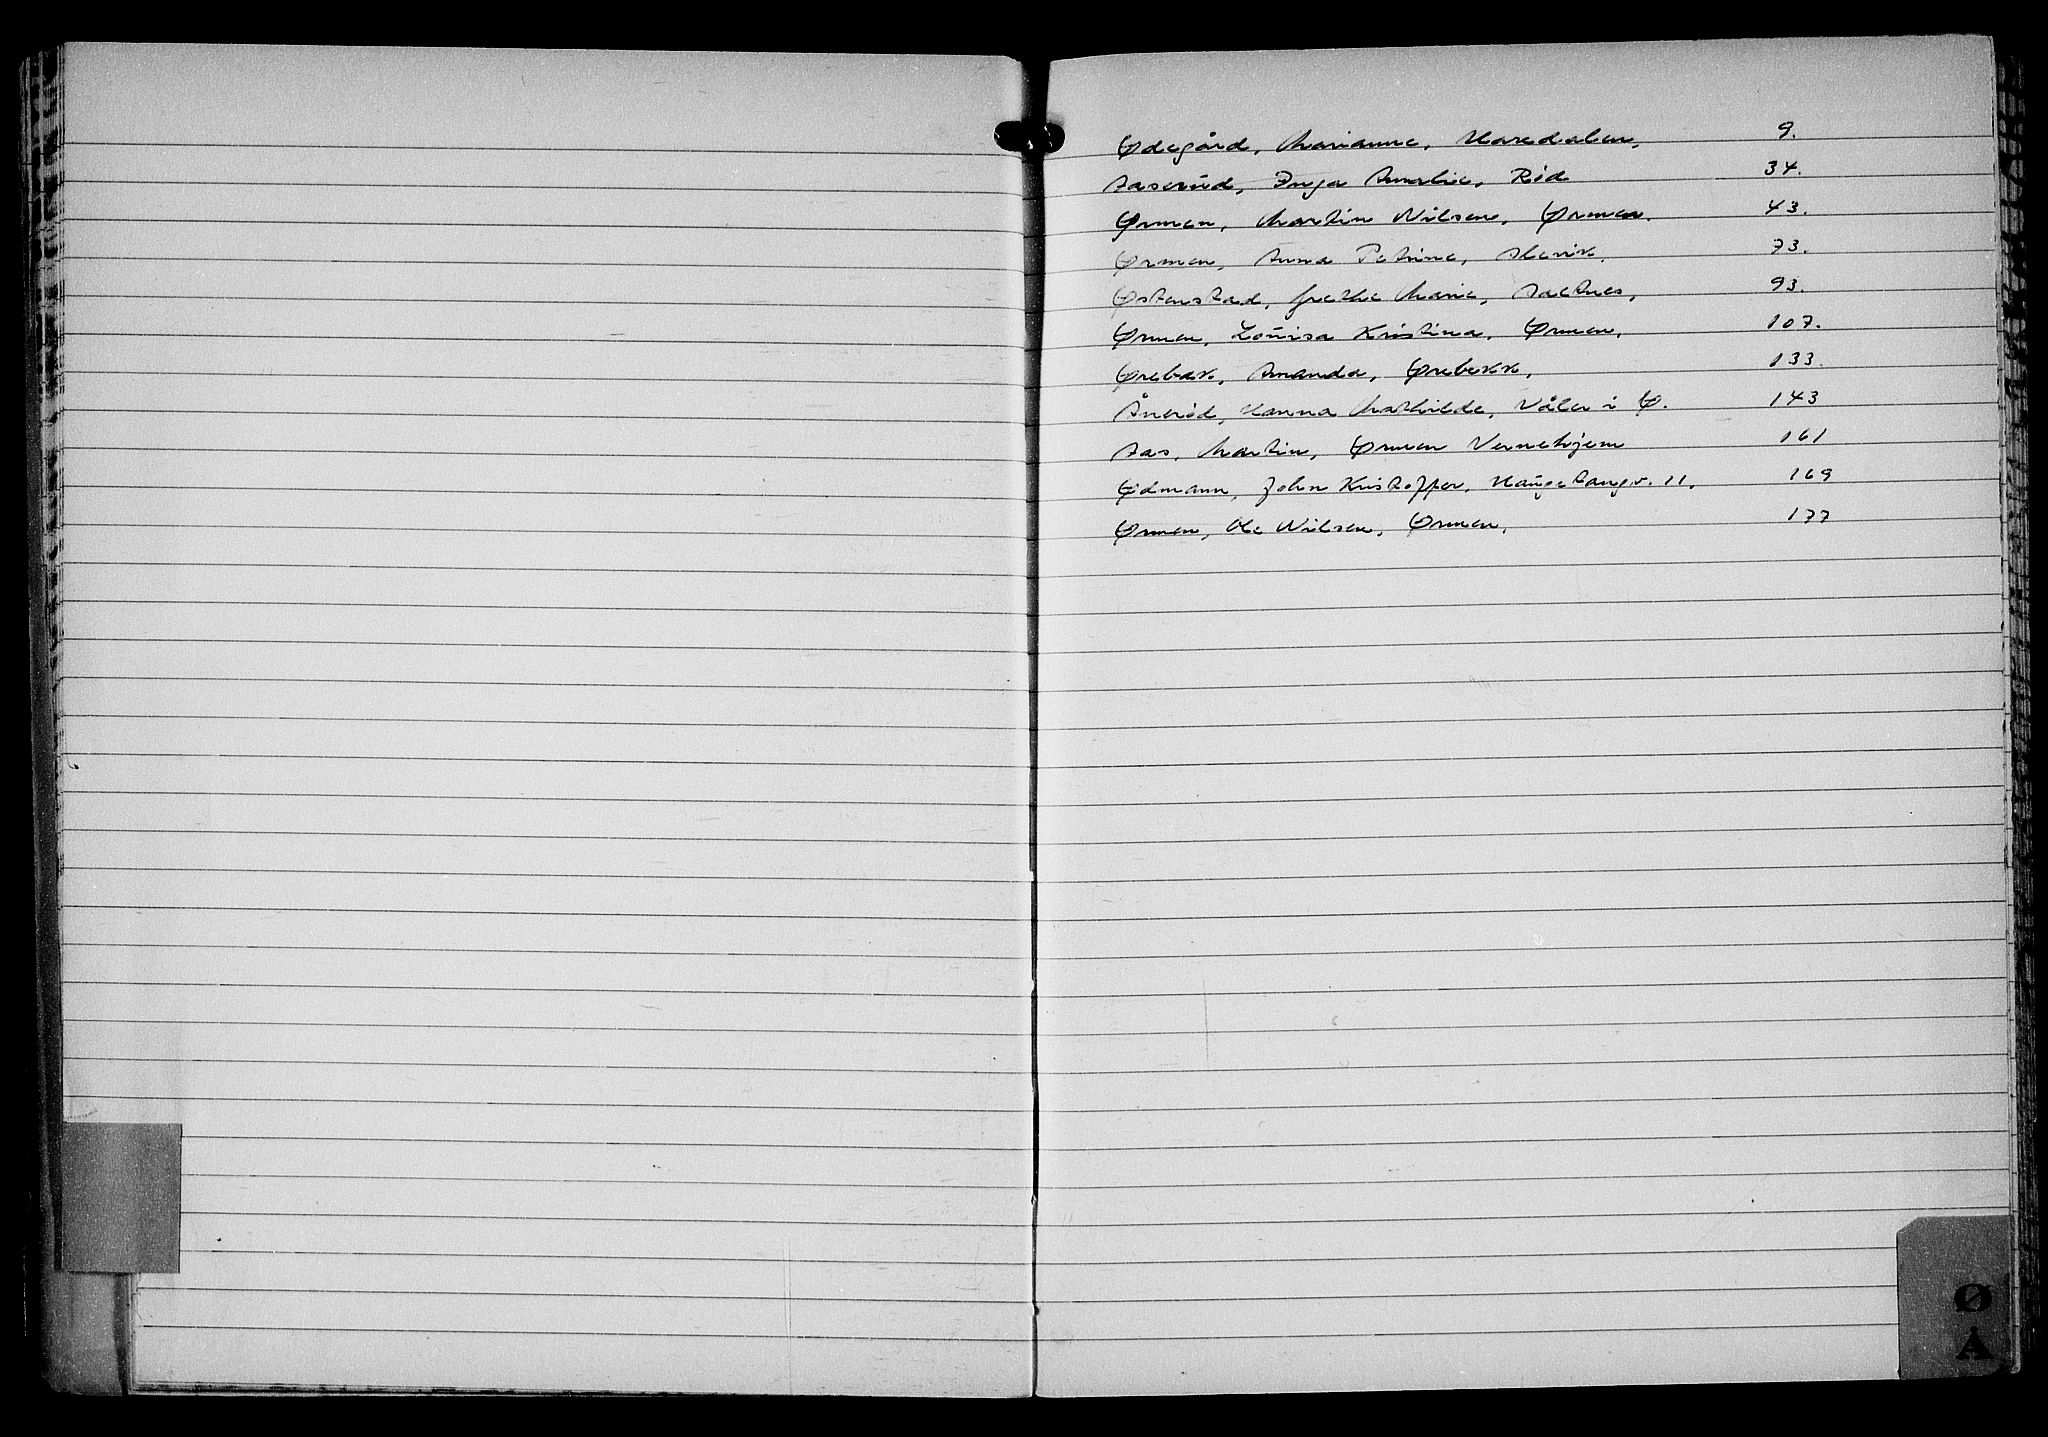 Ødegård, Marianne, Haredalen, 9.
Aaserud, Inga Amalie, Rød 34.
Ørmen, Martin Nilsen, Ørmen. 43.
Ørmen, Anna Petrine, Slevik. 73.
Østenstad, Grethe Marie, Saltnes, 93.
Ørmen, Lovisa Kristina, Ørmen, 107.
Ørebæk, Amanda, Ørebekk, 133.
Ånerød, Hanna Mathilde, Våler i Ø. 143
Aas, Martin, Ørmen Vernehjem 161
Ødmann, John Kristoffer, Haugetangv. 11. 169
Ørmen, Ole Nilsen, Ørmen, 177
Ø
Å